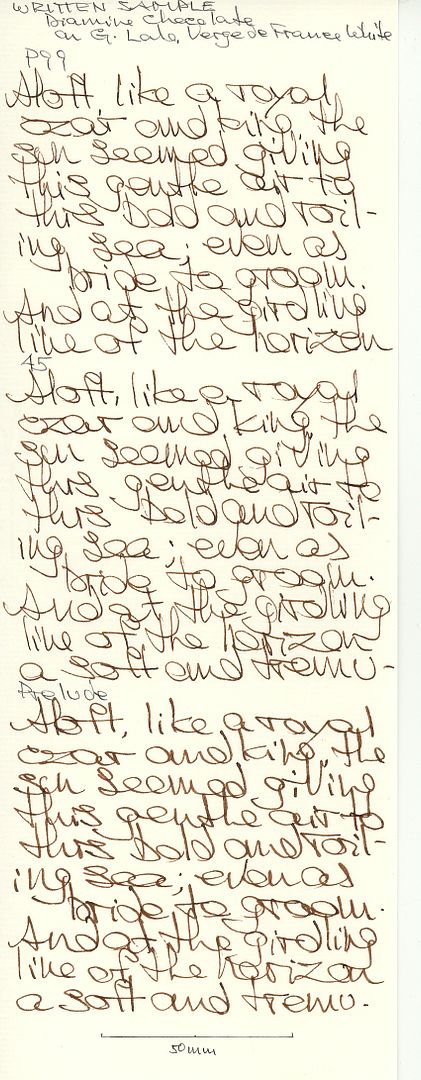 WRITTEN SAMPLE
Diamine Chocolate
on G. Lalo, Verge de France White
P99
Aloft, like a royal
czar and king, the
sun seemed giving
this gentle air to
this bold and roil-
ing sea; even as
bride to groom.
And at the girdling
line of the horizon
45
Aloft, like a royal
czar and king, the
sun seemed giving
this gentle air to
this bold and roil-
ing sea; even as
bride to groom.
And at the girdling
line of the horizon
a soft and tremu-
Prelude
Aloft, like a royal
czar and king, the
sun seemed giving
this gentle air to
this bold and roil-
ing sea; even as
bride to groom.
And at the girdling
line of the horizon
a soft and tremu-
50mm